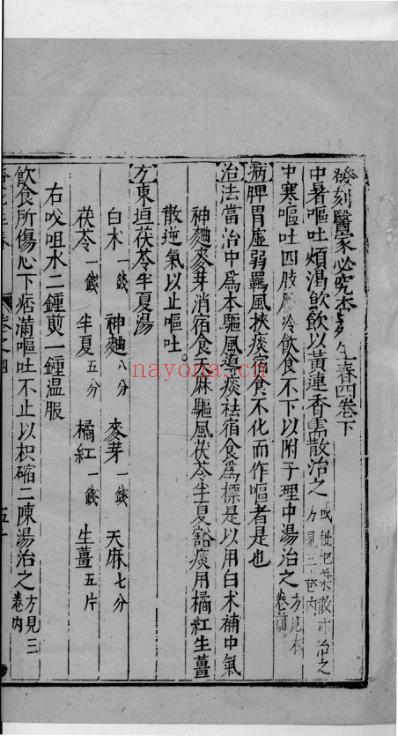 刻醫家必究本生春四卷下
中暑嘔吐煩渴飲飲以黃連香薷散治之或枇杷葉散亦治之方見三卷內
中寒嘔吐四肢厥冷飲食不下以附子理中湯治之方見本卷前
病脾胃虛弱羈風挾痰宿食不化而作嘔者是也
治法當治中爲本驅風導痰袪宿食爲標是以用白术補中氣
神麯麥芽消宿食天麻驅風茯苓半夏豁痰用橘紅生薑
散逆氣以止嘔吐。
方東垣茯苓半夏湯
白术一錢 神麯八分 麥芽一錢 天麻七分
茯苓一錢 半夏五分 橘紅一錢 生薑五片
右㕮咀水二鍾煎一鍾温服
飲食所傷心下痞滿嘔吐不止以枳縮二陳湯治之方見三卷內
生春 卷之四 五十
nayona.cn